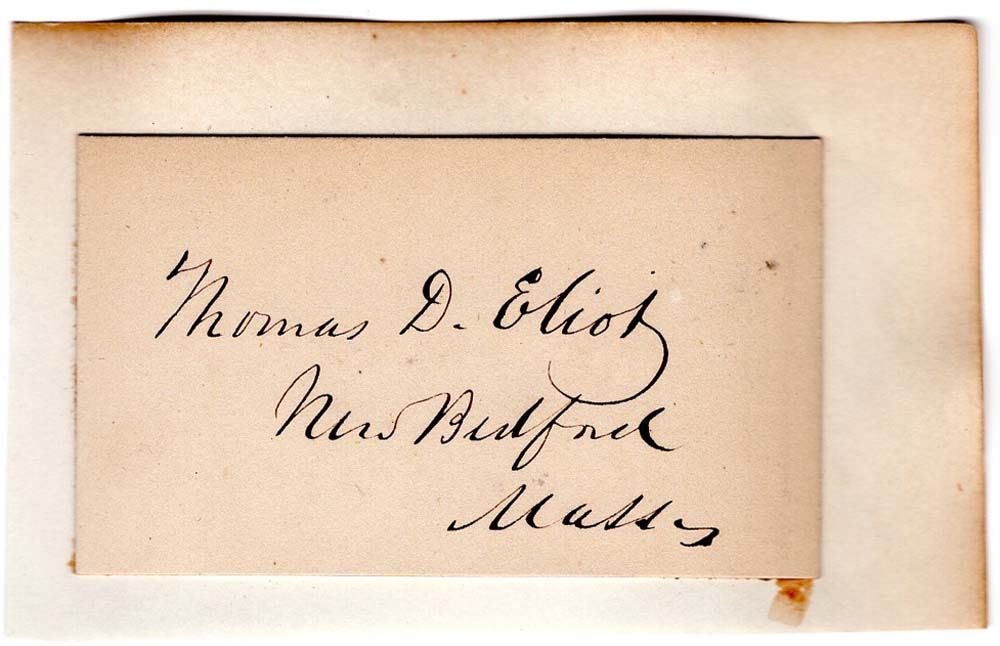 Thomas D. Eliot
New Bedford
Mass